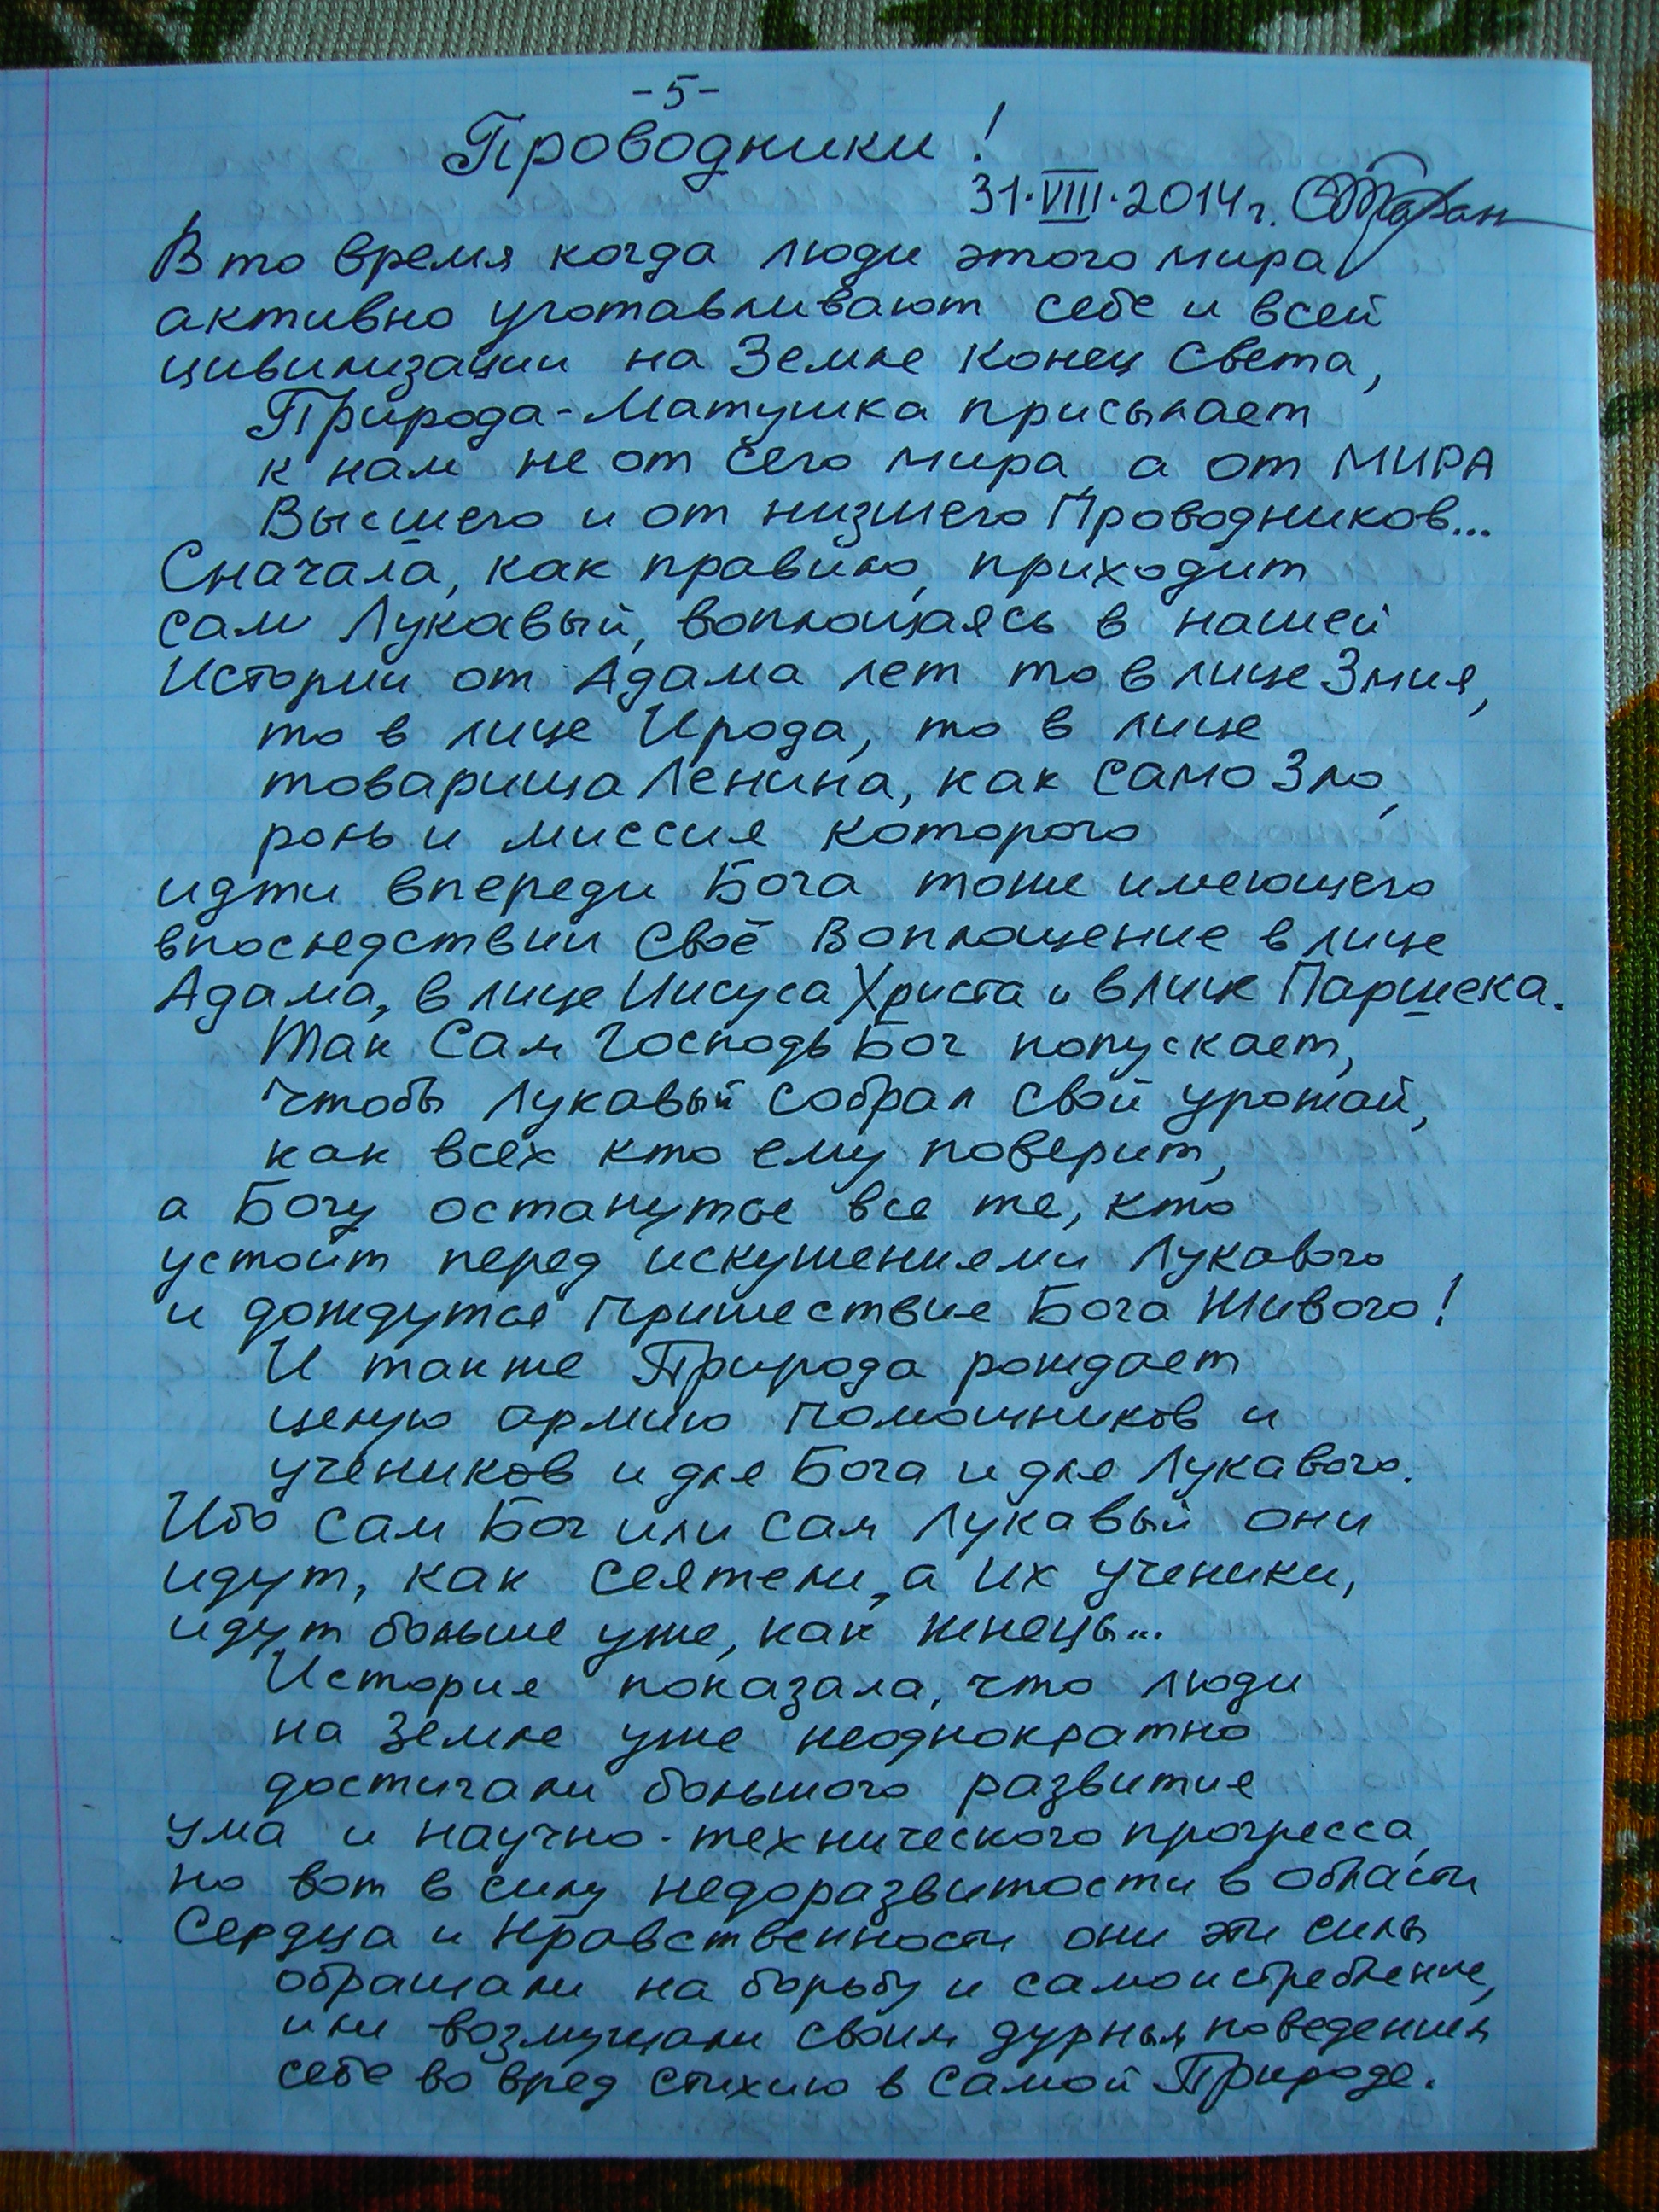 -5-
Проводники!
31.VIII.2014г.
В то время когда люди этого мира
активно уготавливают себе и всей
цивилизации на Земле Конец Света,
Природа-Матушка присылает
к нам не от сего мира а от МИРА
Высшего и от низшего Проводников...
Сначала, как правило, приходит
сам Лукавый, воплощаясь в нашей
Истории от Адама лет то в лице Змия,
то в лице Ирода, то в лице
товарища Ленина, как само Зло,
роль и миссия которого
идти впереди Бога тоже имеющего
впоследствии Своё Воплощение в лице
Адама, в лице Иисуса Христа и в лице Паршека.
Так Сам Господь Бог попускает,
чтобы Лукавый собрал свой урожай,
как всех кто ему поверит,
а Богу останутся все те, кто
устоит перед искушениями Лукавого
и дождутся Пришествие Бога Живого!
И также Природа рождает
целую армию помощников и
учеников и для Бога и для Лукавого.
Ибо сам Бог или сам Лукавый они
идут, как сеятели, а их ученики,
идут больше уже, как жнецы...
История показала, что люди
на Земле уже неоднократно
достигали большого развития
ума и научно-технического прогресса,
но вот в силу недоразвитости в области
Сердца и Нравственности они эти силы
обращали на борьбу и самоистребление,
или возмущали своим дурным поведением
себе во вред стихию в самой Природе.